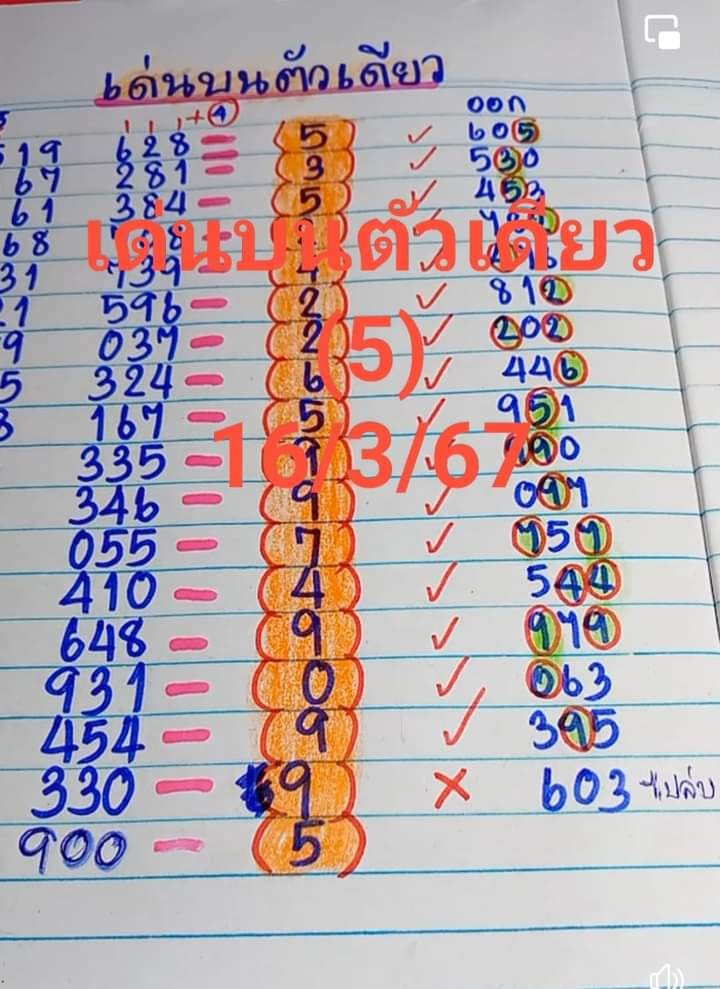 เด่นบนตัวเดียว
+4 ออก
19 628 = 5 ✓ 605
67 281 = 3 ✓ 530
61 384 - 5 ✓ 453
68
เด่นบนตัวเดียว
31 4
596 - 2 ✓ 812
9 037 - 2 ✓ 202
(5)
5 324 - 6 ✓ 446
167 - 5 ✓ 951
16/3/67
335 - 9
346 - 9 ✓ 097
055 - 7 ✓ 757
410 - 4 ✓ 544
648 - 9 ✓ 979
931 - 0 ✓ 063
454 - 9 ✓ 395
330 - 9 × 603
900 - 5